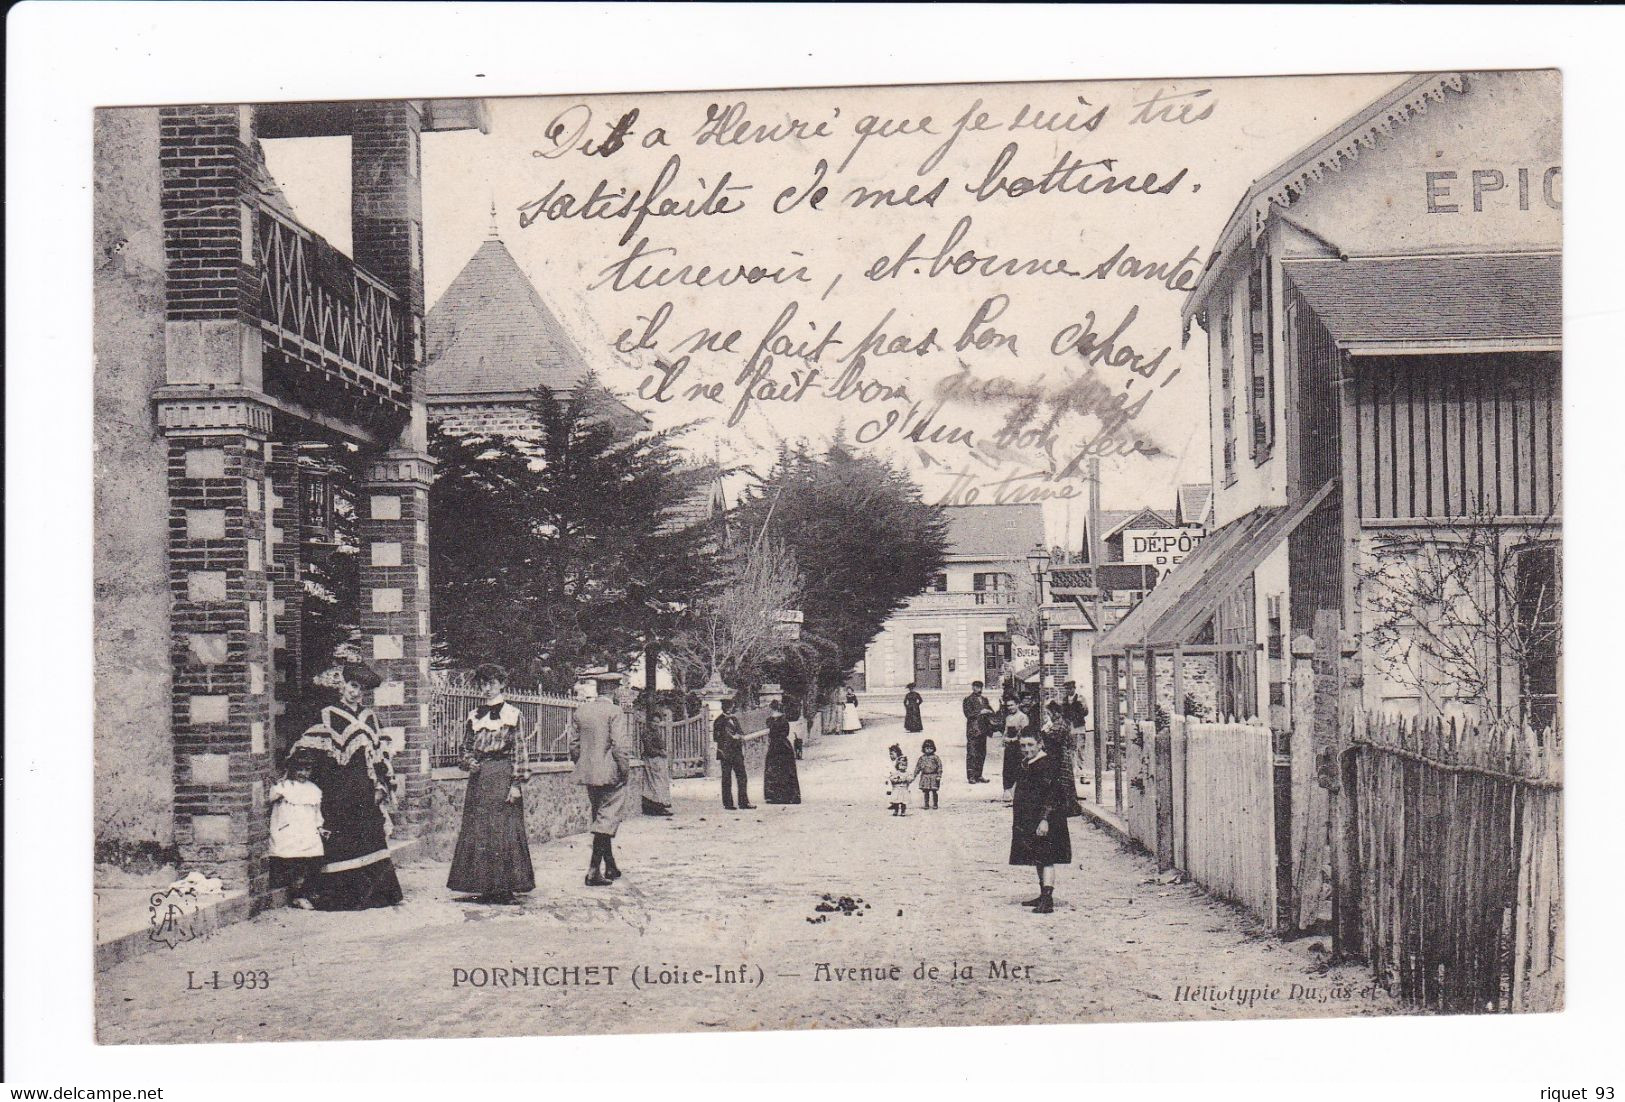 Dit a Henri que je suis très
satisfaite de mes bottines.
turevoir, et bonne santé
il ne fait pas bon dehors,
il ne fait bon, près
d'un bon feu
EPIC
DÉPÔT
DE
L-I 933
PORNICHET (Loire-Inf.) — Avenue de la Mer
Héliotypie Dugas et C
riquet 93